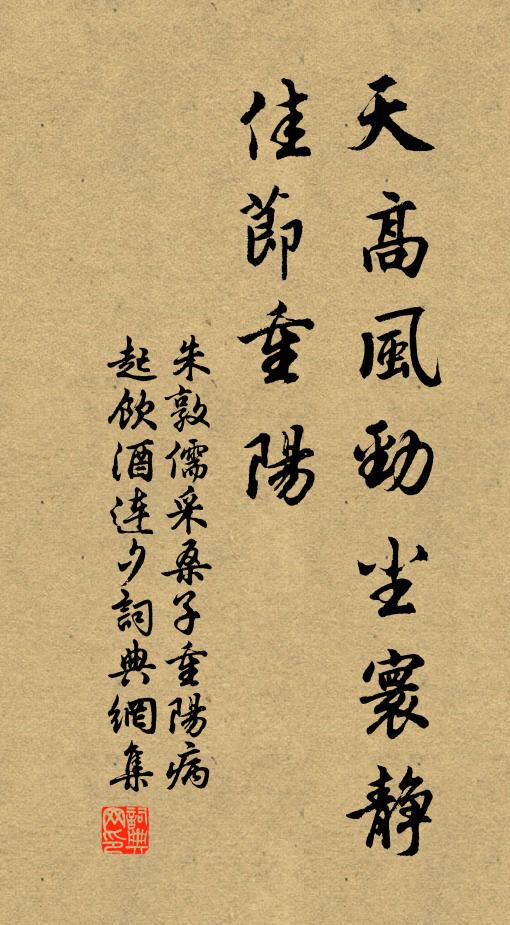 天高風勁尘寰静
佳節重陽
朱敦儒采桑子重陽病
起飲酒连夕詞典網集
詞典网印